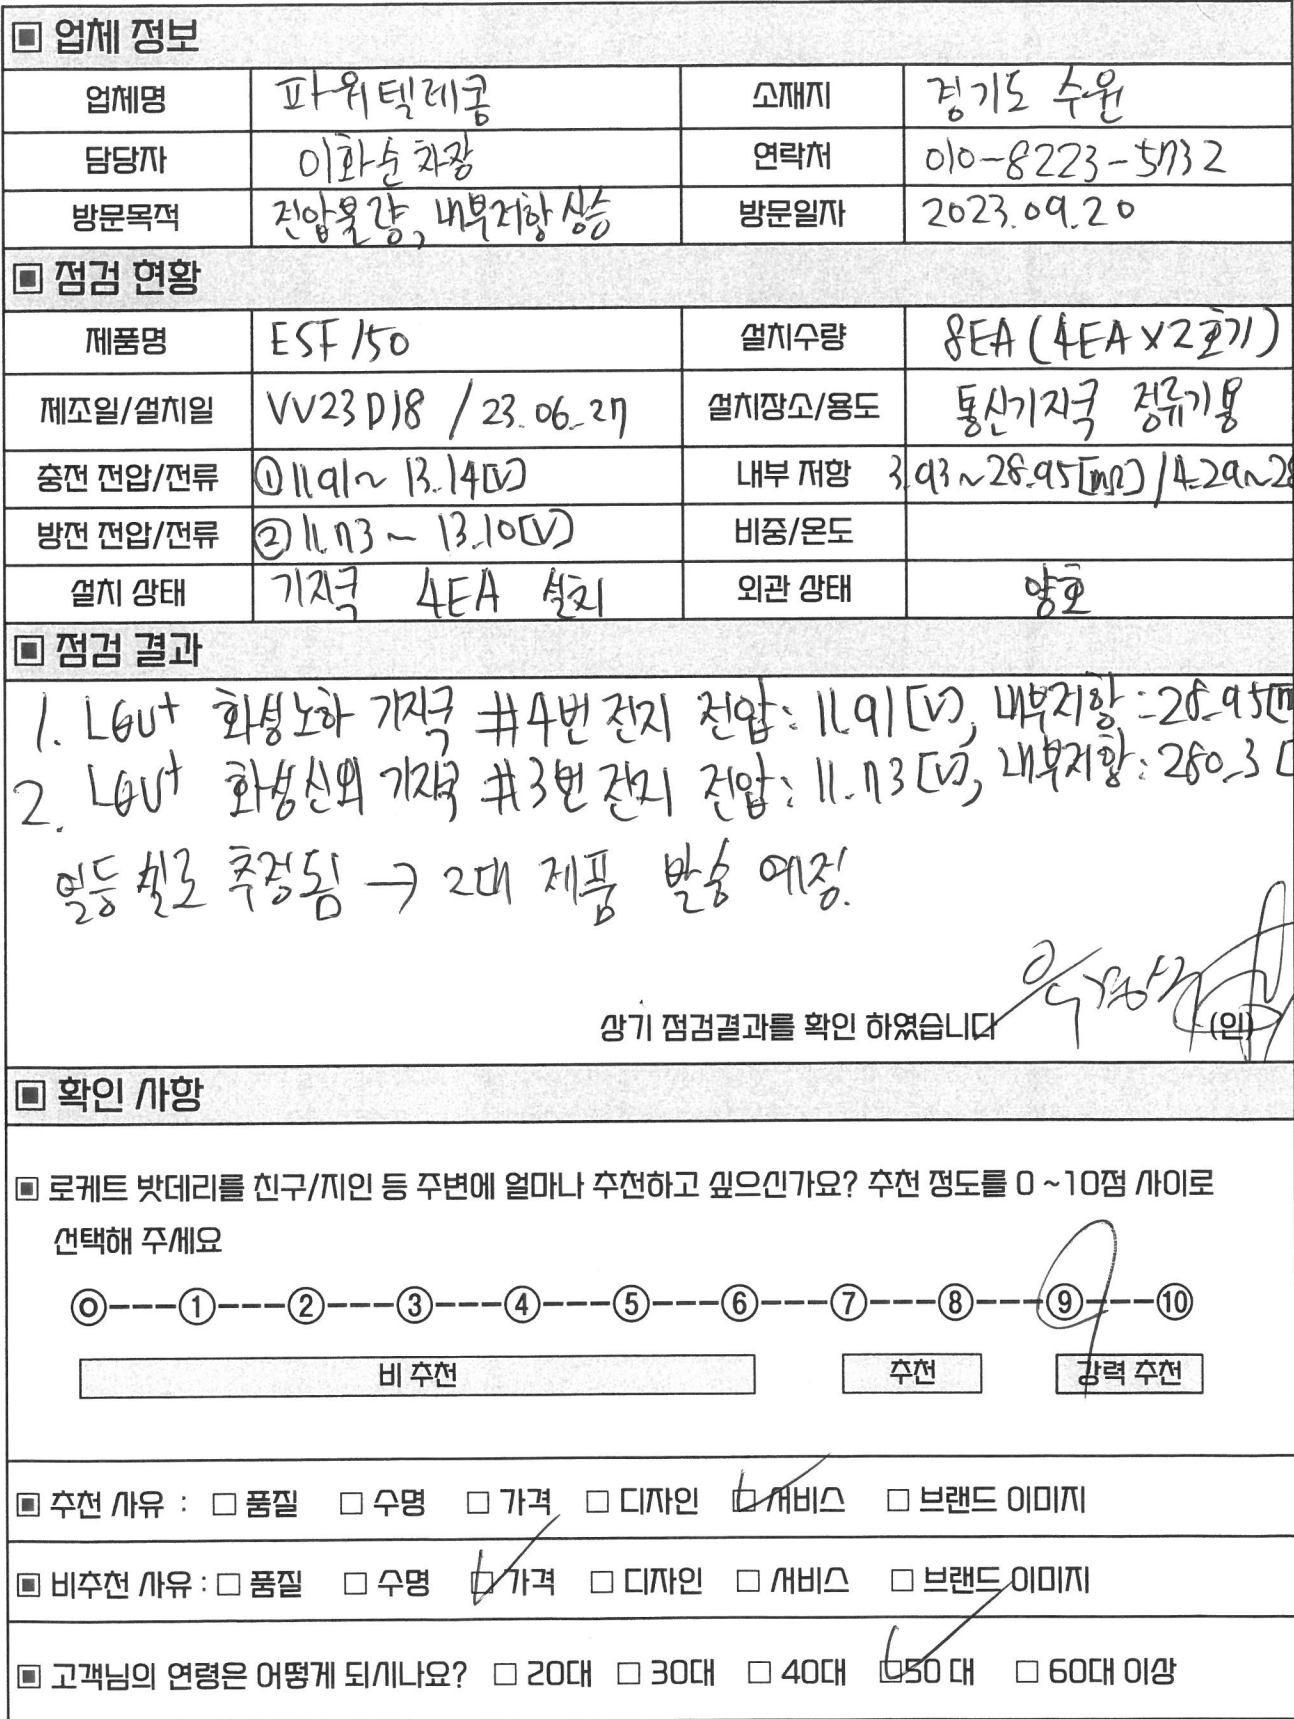 ▣ 업체 정보
업체명 파워텔레콤 소재지 경기도 수원
담당자 이화순 차장 연락처 010-8223-5732
방문목적 전압불량, 내부저항 상승 방문일자 2023.09.20
▣ 점검 현황
제품명 ESF 150 설치수량 8EA (4EA X 2호기)
제조일/설치일 VV23D18 / 23.06.27 설치장소/용도 통신기지국 정류기용
충전 전압/전류 ① 11.91~ 13.14[V] 내부 저항 3.93~28.95[mΩ] / 4.29~28
방전 전압/전류 ② 11.73 ~ 13.10[V] 비중/온도
설치 상태 기지국 4EA 설치 외관 상태 양호
▣ 점검 결과
1. LGU+ 화성노하 기지국 #4번 전지 전압: 11.91[V], 내부저항: 28.95[m
2. LGU+ 화성신외 기지국 #3번 전지 전압: 11.73[V], 내부저항: 280.3 [
추정됨 → 2대 제품 발송 예정.
상기 점검결과를 확인 하였습니다 (인)
▣ 확인 사항
▣ 로케트 밧데리를 친구/지인 등 주변에 얼마나 추천하고 싶으신가요? 추천 정도를 0 ~10점 사이로
선택해 주세요
⓪---①---②---③---④---⑤---⑥---⑦---⑧---⑨---⑩
비 추천 추천 강력 추천
▣ 추천 사유 : □ 품질 □ 수명 □ 가격 □ 디자인 □ 서비스 □ 브랜드 이미지
▣ 비추천 사유 : □ 품질 □ 수명 □ 가격 □ 디자인 □ 서비스 □ 브랜드 이미지
▣ 고객님의 연령은 어떻게 되시나요? □ 20대 □ 30대 □ 40대 □ 50 대 □ 60대 이상